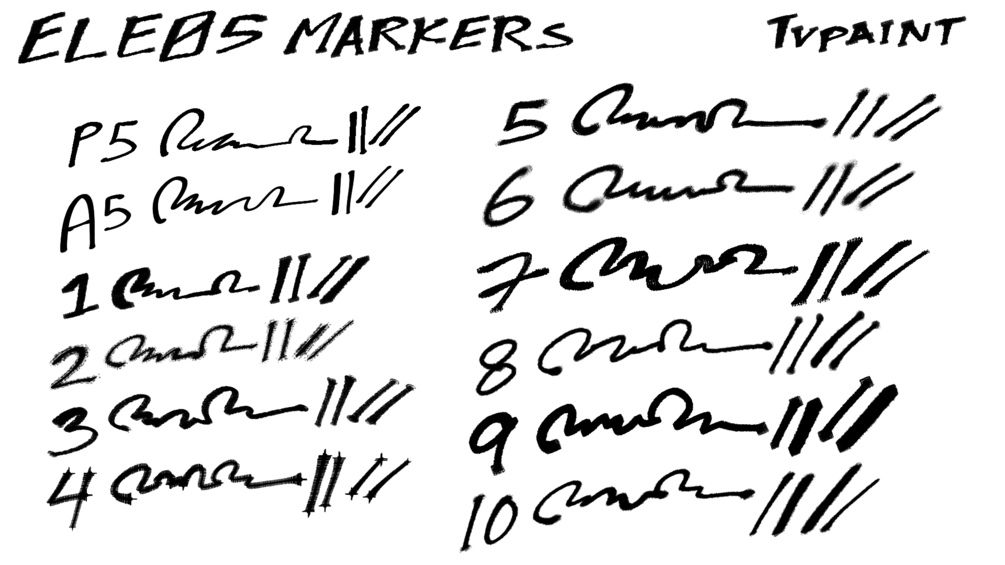 ELE05 MARKERS
TVPAINT
P5
A5
1
2
3
4
5
6
7
8
9
10